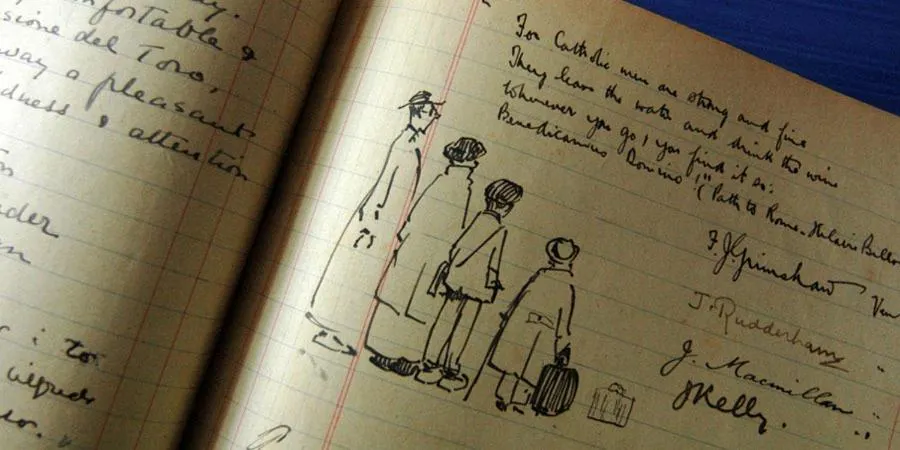 ay.
comfortable &
sione del Toro,
way a pleasant
dness & attention
to
For Catholic men are strong and fine
They leave the water and drink the wine
Wherever you go, you find it so:
Benedicamus Domino!" (Path to Rome. Hilaire Bello
F. J. Grimshaw Ven
J. Rudderham "
J. Macmillan "
J Kelly. "